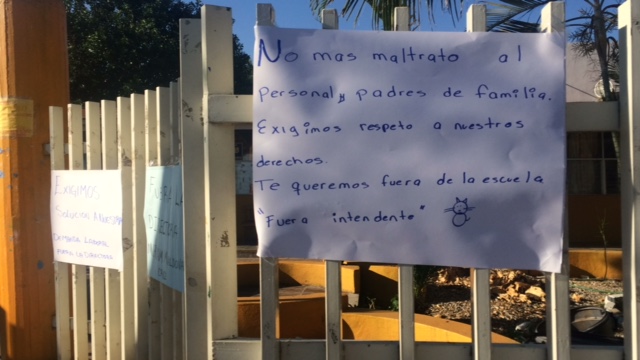 No mas maltrato al
personal y padres de familia.
Exigimos respeto a nuestros
derechos.
Te queremos fuera de la escuela
"Fuera intendente"
EXIGIMOS
Solución A Nuestra
Demanda Laboral
FUERA LA